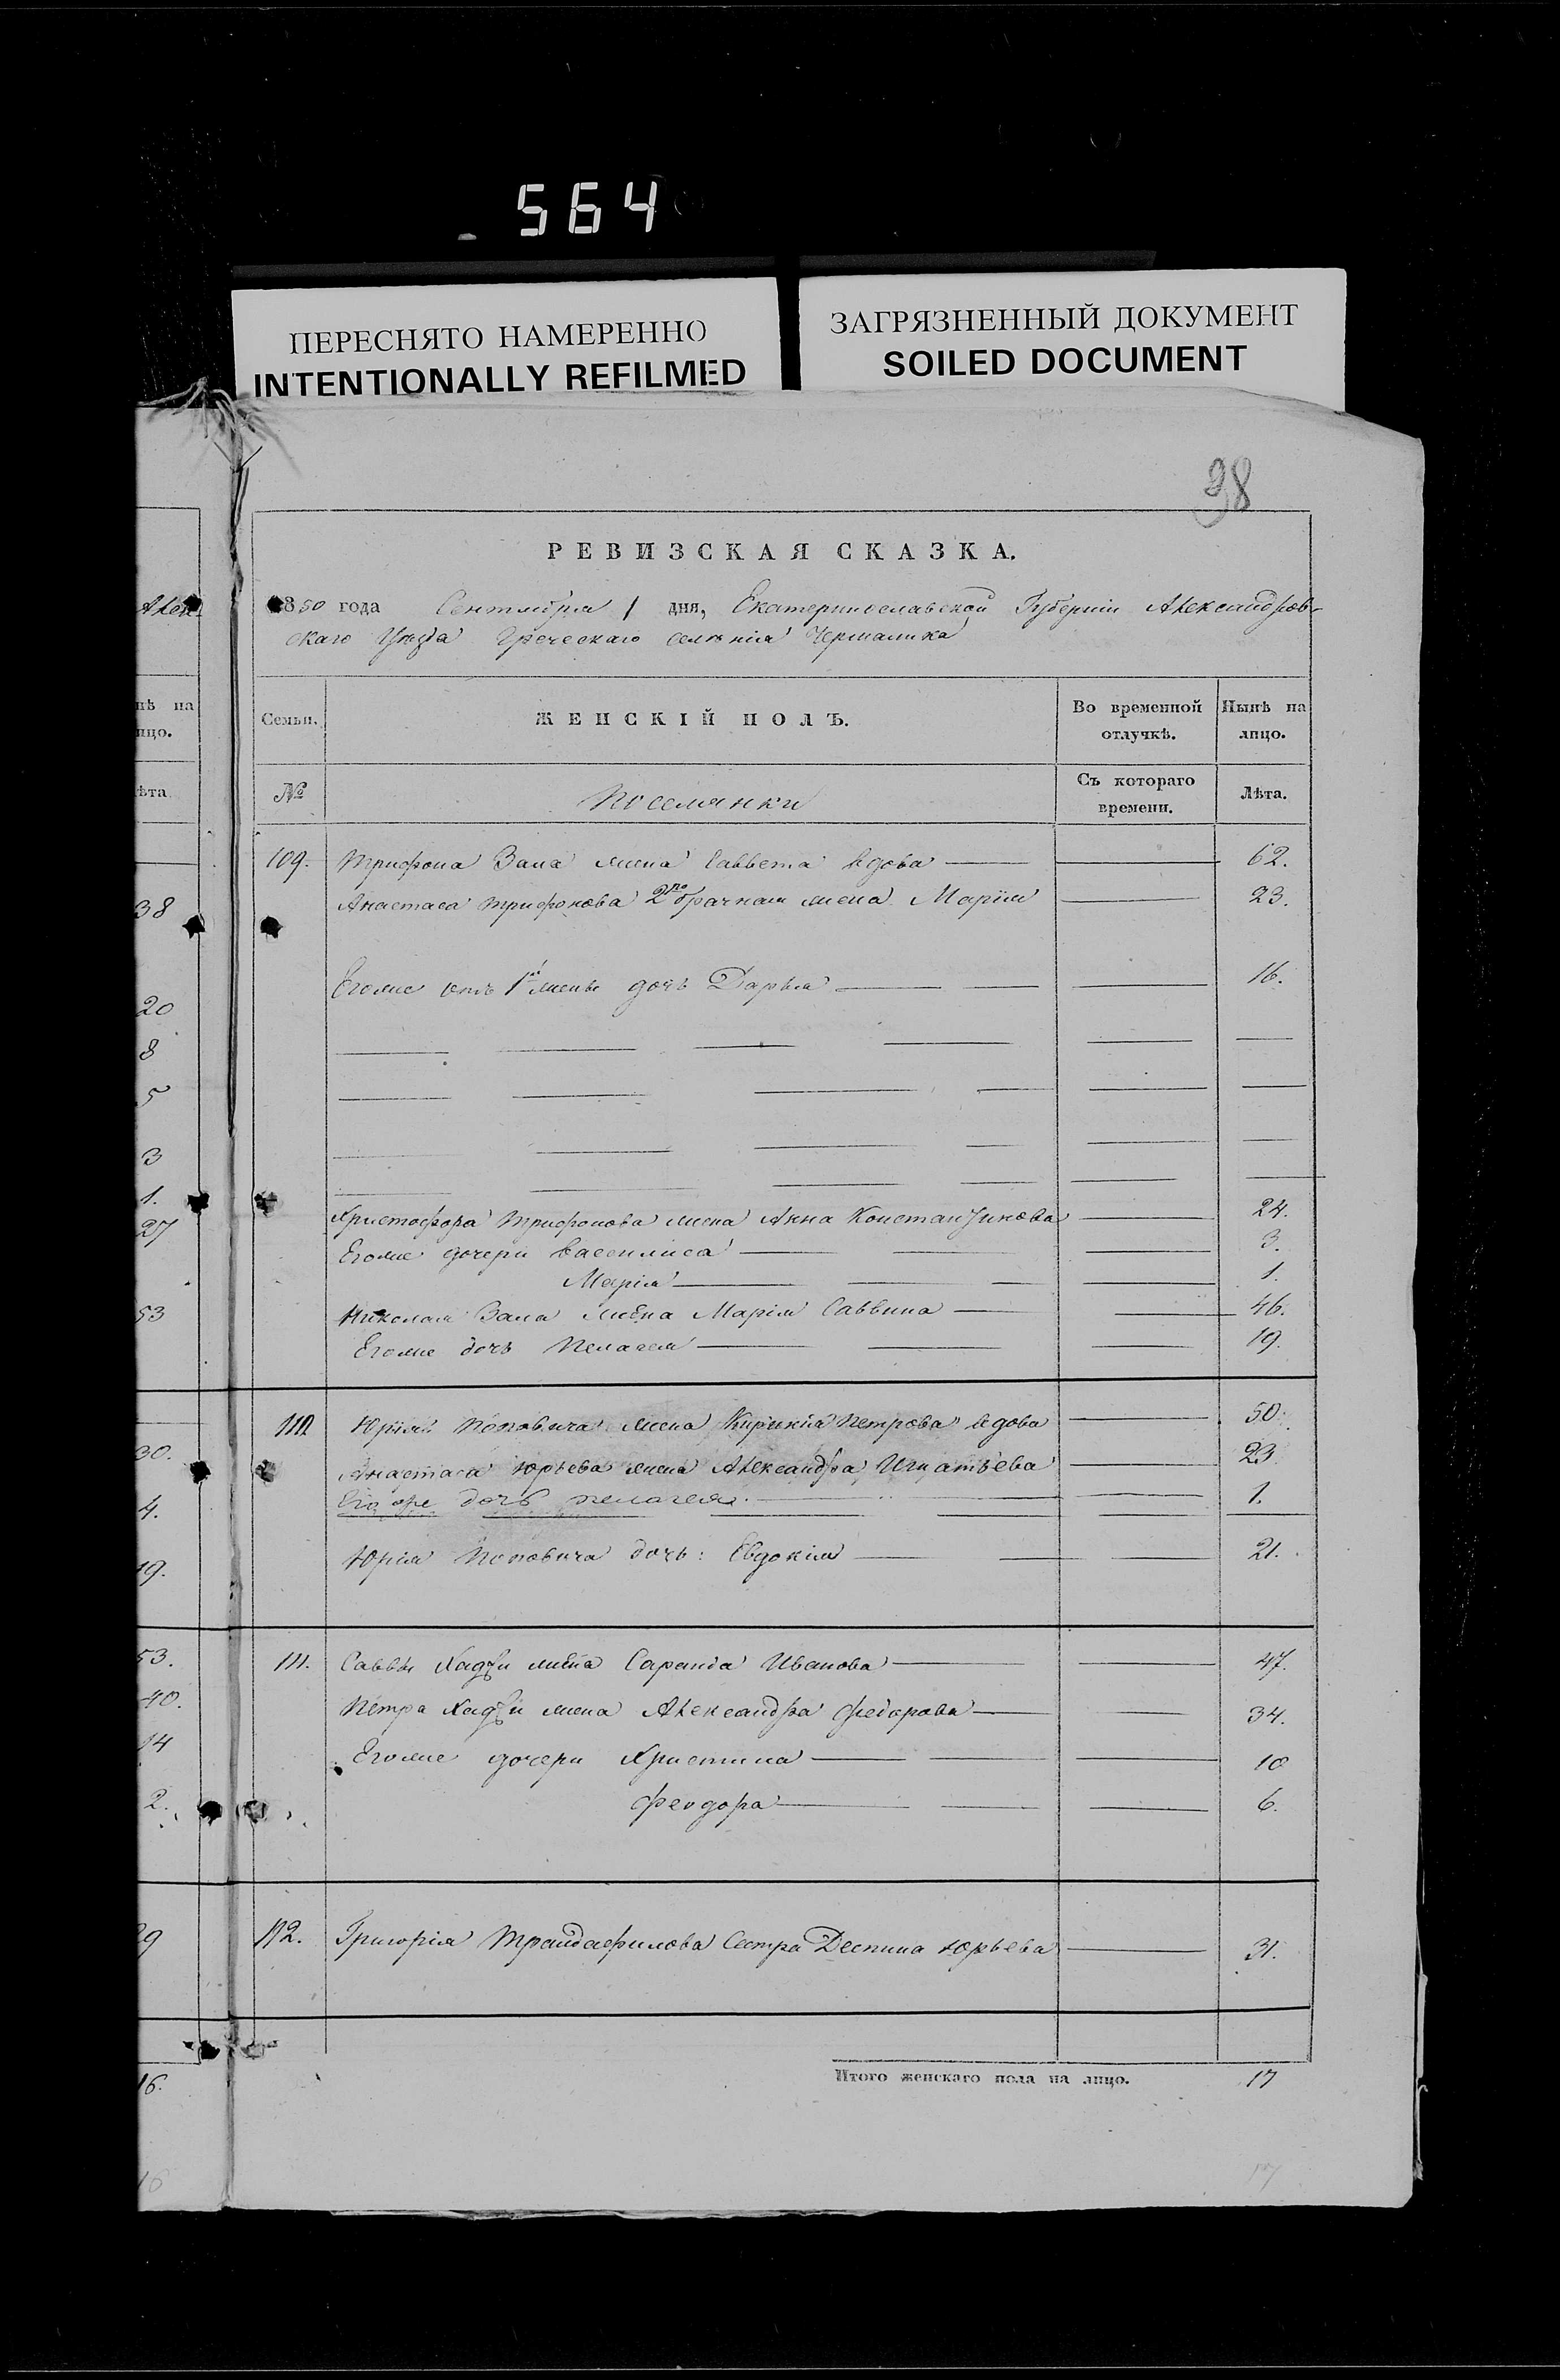 564
ПЕРЕСНЯТО НАМЕРЕННО
INTENTIONALLY REFILMED
ЗАГРЯЗНЕННЫЙ ДОКУМЕНТ
SOILED DOCUMENT
98
РЕВИЗСКАЯ СКАЗКА.
1850 года Сентября 1 дня, Екатеринославской Губерніи Александров-
скаго Уѣзда Греческаго селѣнія Чермалика
Семьи.
ЖЕНСКІЙ ПОЛЪ.
Во временной отлучкѣ.
Нынѣ на лицо.
№
Поселянки
Съ котораго времени.
Лѣта.
109. Трифона Зала жена Саввета вдова 62.
Анастаса Трифонова 2по брачная жена Марія 23.
Егоже отъ 1й жены дочь Дарья 16.
Христофора Трифонова жена Анна Константинова 24.
Егоже дочери Василиса 3.
Марія 1.
Николая Зала жена Марія Саввина 46.
Егоже дочь Пелагея 19.
110 Юрія Поповича жена Кирикія Петрова вдова 50.
Анастаса Юрьева жена Александра Игнатьева 23
Его же дочь пелагея. 1.
Юрія Поповича дочь: Евдокія 21.
111. Саввы Хаджи жена Саранда Иванова 47.
Петра Хаджи жена Александра Федорова 34.
Егоже дочери Христина 10
Феодора 6.
112. Григорія Трандафилова Сестра Деспина Юрьева 31.
Итого женскаго пола на лицо. 17
17
Алек
нѣ на
ицо.
ѣта
38
20
8
5
3
1.
27
53
30.
4.
19.
53.
40.
14
2.
29
16.
16